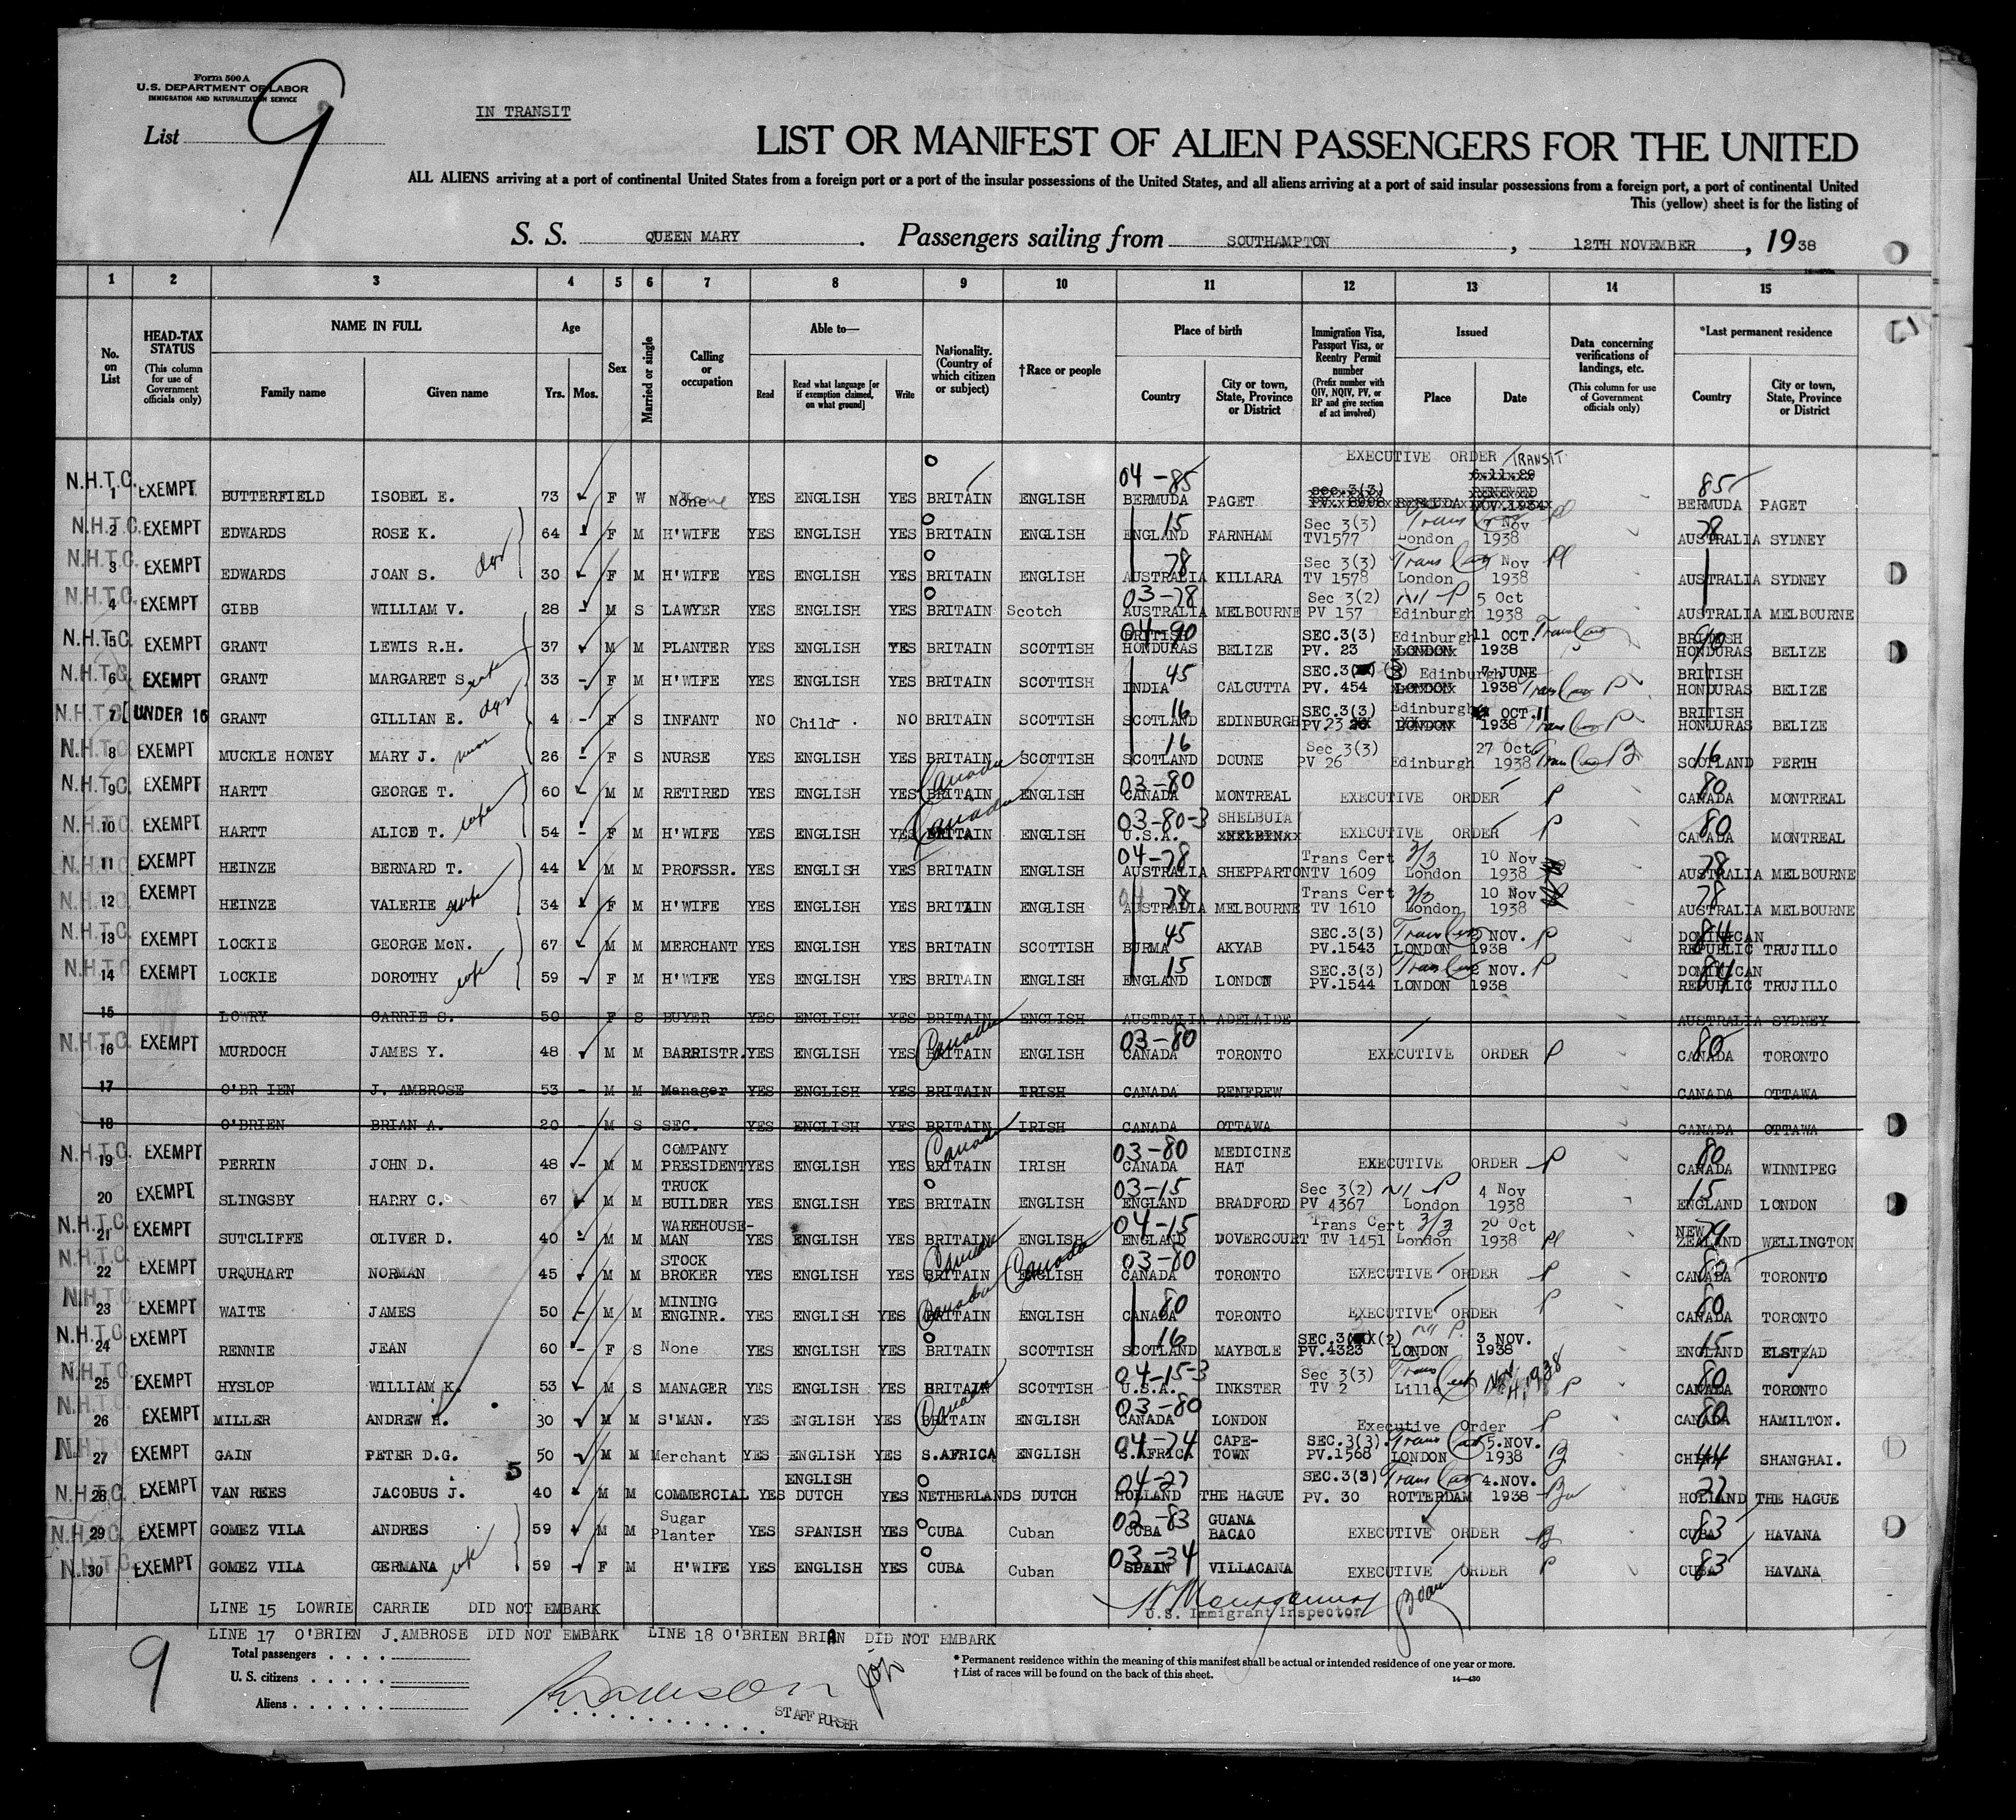 Form 500 A
U.S. DEPARTMENT OF LABOR
IMMIGRATION AND NATURALIZATION SERVICE
List 9
IN TRANSIT
LIST OR MANIFEST OF ALIEN PASSENGERS FOR THE UNITED
ALL ALIENS arriving at a port of continental United States from a foreign port or a port of the insular possessions of the United States, and all aliens arriving at a port of said insular possessions from a foreign port, a port of continental United
This (yellow) sheet is for the listing of
S. S. QUEEN MARY. Passengers sailing from SOUTHAMPTON, 12TH NOVEMBER, 1938
1 2 3 4 5 6 7 8 9 10 11 12 13 14 15
No. on List
HEAD-TAX STATUS (This column for use of Government officials only)
NAME IN FULL Family name Given name
Age Yrs. Mos.
Sex
Married or single
Calling or occupation
Able to— Read Read what language [or if exemption claimed, on what ground] Write
Nationality. (Country of which citizen or subject)
†Race or people
Place of birth Country City or town, State, Province or District
Immigration Visa, Passport Visa, or Reentry Permit number (Prefix number with QIV, NQIV, PV, or RP and give section of act involved)
Issued Place Date
Data concerning verifications of landings, etc. (This column for use of Government officials only)
*Last permanent residence Country City or town, State, Province or District
EXECUTIVE ORDER TRANSIT
N.H.T.C. 1 EXEMPT BUTTERFIELD ISOBEL E. 73 F W None YES ENGLISH YES BRITAIN ENGLISH 04-85 BERMUDA PAGET 85 BERMUDA PAGET
N.H.T.C. 2 EXEMPT EDWARDS ROSE K. 64 F M H'WIFE YES ENGLISH YES BRITAIN ENGLISH 15 ENGLAND FARNHAM Sec 3(3) TV1577 London Nov 1938 78 AUSTRALIA SYDNEY
N.H.T.C. 3 EXEMPT EDWARDS JOAN S. 30 - F M H'WIFE YES ENGLISH YES BRITAIN ENGLISH 78 AUSTRALIA KILLARA Sec 3(3) TV 1578 London Nov 1938 AUSTRALIA SYDNEY
N.H.T.C. 4 EXEMPT GIBB WILLIAM V. 28 M S LAWYER YES ENGLISH YES BRITAIN Scotch 03-78 AUSTRALIA MELBOURNE Sec 3(2) PV 157 Edinburgh 5 Oct 1938 AUSTRALIA MELBOURNE
N.H.T.C. 5 EXEMPT GRANT LEWIS R.H. 37 M M PLANTER YES ENGLISH YES BRITAIN SCOTTISH 04-90 BRITISH HONDURAS BELIZE SEC.3(3) PV. 23 Edinburgh LONDON 11 OCT. 1938 90 BRITISH HONDURAS BELIZE
N.H.T.C. 6 EXEMPT GRANT MARGARET S. wife 33 - F M H'WIFE YES ENGLISH YES BRITAIN SCOTTISH 45 INDIA CALCUTTA SEC.3 (3) PV. 454 Edinburgh LONDON 7 JUNE 1938 BRITISH HONDURAS BELIZE
N.H.T.C. 7 UNDER 16 GRANT GILLIAN E. 4 - F S INFANT NO Child NO BRITAIN SCOTTISH 16 SCOTLAND EDINBURGH SEC.3(3) PV.23 Edinburgh LONDON OCT.11 1938 BRITISH HONDURAS BELIZE
N.H.T.C. 8 EXEMPT MUCKLE HONEY MARY J. 26 - F S NURSE YES ENGLISH YES BRITAIN SCOTTISH 16 SCOTLAND DOUNE Sec 3(3) PV 26 Edinburgh 27 Oct 1938 16 SCOTLAND PERTH
N.H.T.C. 9 EXEMPT HARTT GEORGE T. 60 M M RETIRED YES ENGLISH YES BRITAIN Canada ENGLISH 03-80 CANADA MONTREAL EXECUTIVE ORDER P 80 CANADA MONTREAL
N.H.T.C. 10 EXEMPT HARTT ALICE T. wife 54 - F M H'WIFE YES ENGLISH YES BRITAIN Canada ENGLISH 03-80-3 U.S.A. SHELBUIA EXECUTIVE ORDER P 80 CANADA MONTREAL
N.H.T.C. 11 EXEMPT HEINZE BERNARD T. 44 M M PROFSSR. YES ENGLISH YES BRITAIN ENGLISH 04-78 AUSTRALIA SHEPPARTON Trans Cert 3/3 TV 1609 London 10 Nov 1938 78 AUSTRALIA MELBOURNE
N.H.T.C. 12 EXEMPT HEINZE VALERIE A. wife 34 F M H'WIFE YES ENGLISH YES BRITAIN ENGLISH 78 AUSTRALIA MELBOURNE Trans Cert 3/3 TV 1610 London 10 Nov 1938 78 AUSTRALIA MELBOURNE
N.H.T.C. 13 EXEMPT LOCKIE GEORGE McN. 67 M M MERCHANT YES ENGLISH YES BRITAIN SCOTTISH 45 BURMA AKYAB SEC.3(3) PV.1543 LONDON 2 NOV. 1938 P 84 DOMINICAN REPUBLIC TRUJILLO
N.H.T.C. 14 EXEMPT LOCKIE DOROTHY wife 59 F M H'WIFE YES ENGLISH YES BRITAIN ENGLISH 15 ENGLAND LONDON SEC.3(3) PV.1544 LONDON 2 NOV. 1938 P 84 DOMINICAN REPUBLIC TRUJILLO
15 LOWRY CARRIE S. 50 F S BUYER YES ENGLISH YES BRITAIN ENGLISH AUSTRALIA ADELAIDE AUSTRALIA SYDNEY
N.H.T.C. 16 EXEMPT MURDOCH JAMES Y. 48 M M BARRISTR. YES ENGLISH YES BRITAIN Canada ENGLISH 03-80 CANADA TORONTO EXECUTIVE ORDER P 80 CANADA TORONTO
17 O'BRIEN J. AMBROSE 53 - M M Manager YES ENGLISH YES BRITAIN IRISH CANADA RENFREW CANADA OTTAWA
18 O'BRIEN BRIAN A. 20 - M S SEC. YES ENGLISH YES BRITAIN IRISH CANADA OTTAWA CANADA OTTAWA
N.H.T.C. 19 EXEMPT PERRIN JOHN D. 48 - M M COMPANY PRESIDENT YES ENGLISH YES BRITAIN Canada IRISH 03-80 CANADA MEDICINE HAT EXECUTIVE ORDER P 80 CANADA WINNIPEG
20 EXEMPT SLINGSBY HARRY C. 67 M M TRUCK BUILDER YES ENGLISH YES BRITAIN ENGLISH 03-15 ENGLAND BRADFORD Sec 3(2) PV 4367 London 4 Nov 1938 15 ENGLAND LONDON
N.H.T.C. 21 EXEMPT SUTCLIFFE OLIVER D. 40 - M M WAREHOUSE-MAN YES ENGLISH YES BRITAIN ENGLISH 04-15 ENGLAND DOVERCOURT Trans Cert 3/3 TV 1451 London 20 Oct 1938 79 NEW ZEALAND WELLINGTON
N.H.T.C. 22 EXEMPT URQUHART NORMAN 45 M M STOCK BROKER YES ENGLISH YES BRITAIN Canada ENGLISH Canada 03-80 CANADA TORONTO EXECUTIVE ORDER P 80 CANADA TORONTO
N.H.T.C. 23 EXEMPT WAITE JAMES 50 - M M MINING ENGINR. YES ENGLISH YES BRITAIN Canada ENGLISH 80 CANADA TORONTO EXECUTIVE ORDER P 80 CANADA TORONTO
N.H.T.C. 24 EXEMPT RENNIE JEAN 60 - F S None YES ENGLISH YES BRITAIN SCOTTISH 16 SCOTLAND MAYBOLE SEC.3 (2) PV.4323 LONDON 3 NOV. 1938 15 ENGLAND ELSTEAD
N.H.T.C. 25 EXEMPT HYSLOP WILLIAM K. 53 - M S MANAGER YES ENGLISH YES BRITAIN SCOTTISH 04-15-3 U.S.A. INKSTER Sec 3(3) TV 2 Lille Nov. 4, 1938 P 80 CANADA TORONTO
N.H.T.C. 26 EXEMPT MILLER ANDREW H. 30 M M S'MAN. YES ENGLISH YES BRITAIN Canada ENGLISH 03-80 CANADA LONDON Executive Order P 80 CANADA HAMILTON.
N.H.T.C. 27 EXEMPT GAIN PETER D.G. 50 M M Merchant YES ENGLISH YES S.AFRICA ENGLISH 04-74 S.AFRICA CAPE-TOWN SEC.3(3). PV.1568 LONDON 5.NOV. 1938 44 CHINA SHANGHAI.
N.H.T.C. 28 EXEMPT VAN REES JACOBUS J. 5 40 M M COMMERCIAL YES ENGLISH DUTCH YES NETHERLANDS DUTCH 04-22 HOLLAND THE HAGUE SEC.3(3) PV. 30 ROTTERDAM 4.NOV. 1938 22 HOLLAND THE HAGUE
N.H.T.C. 29 EXEMPT GOMEZ VILA ANDRES 59 M M Sugar Planter YES SPANISH YES CUBA Cuban 02-83 CUBA GUANA BACAO EXECUTIVE ORDER 83 CUBA HAVANA
N.H.T.C. 30 EXEMPT GOMEZ VILA GERMANA wife 59 F M H'WIFE YES ENGLISH YES CUBA Cuban 03-34 SPAIN VILLACANA EXECUTIVE ORDER P 83 CUBA HAVANA
LINE 15 LOWRIE CARRIE DID NOT EMBARK
U.S. Immigrant Inspector
LINE 17 O'BRIEN J.AMBROSE DID NOT EMBARK LINE 18 O'BRIEN BRIAN DID NOT EMBARK
9
Total passengers
U.S. citizens
Aliens
STAFF PURSER
* Permanent residence within the meaning of this manifest shall be actual or intended residence of one year or more.
† List of races will be found on the back of this sheet.
14—430